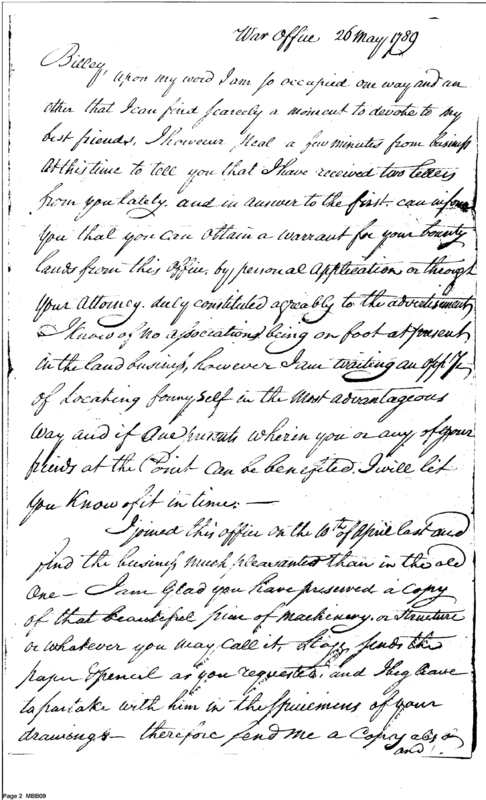 War Office 26 May 1789
Billey,
Upon my word I am so occupied one way and an
other that I can find scarcely a moment to devote to my
best friends. I however steal a few minutes from business
at this time to tell you that I have received two letters
from you lately. and in answer to the first can inform
you that you can obtain a warrant for your bounty
lands from this office, by personal application or through
your Attorney. duly constituted agreably to the advertisement
I know of no associations being on foot at present
in the land business, however I am waiting an oppy
of Locating for myself in the most advantageous
way and if One presents wherein you or any of your
friends at the Point can be benefited, I will let
you know of it in time. —
I joined this office on the 10th of April last and
find the business much pleasanter than in the old
one — I am Glad you have preserved a copy
of that beautiful piece of Machinery. or Structure
or whatever you may call it. sends the
paper & pencil as you requested; and I beg leave
to partake with him in the Specimens of your
drawings — therefore send me a Copy also
and
Page 2 MBB09